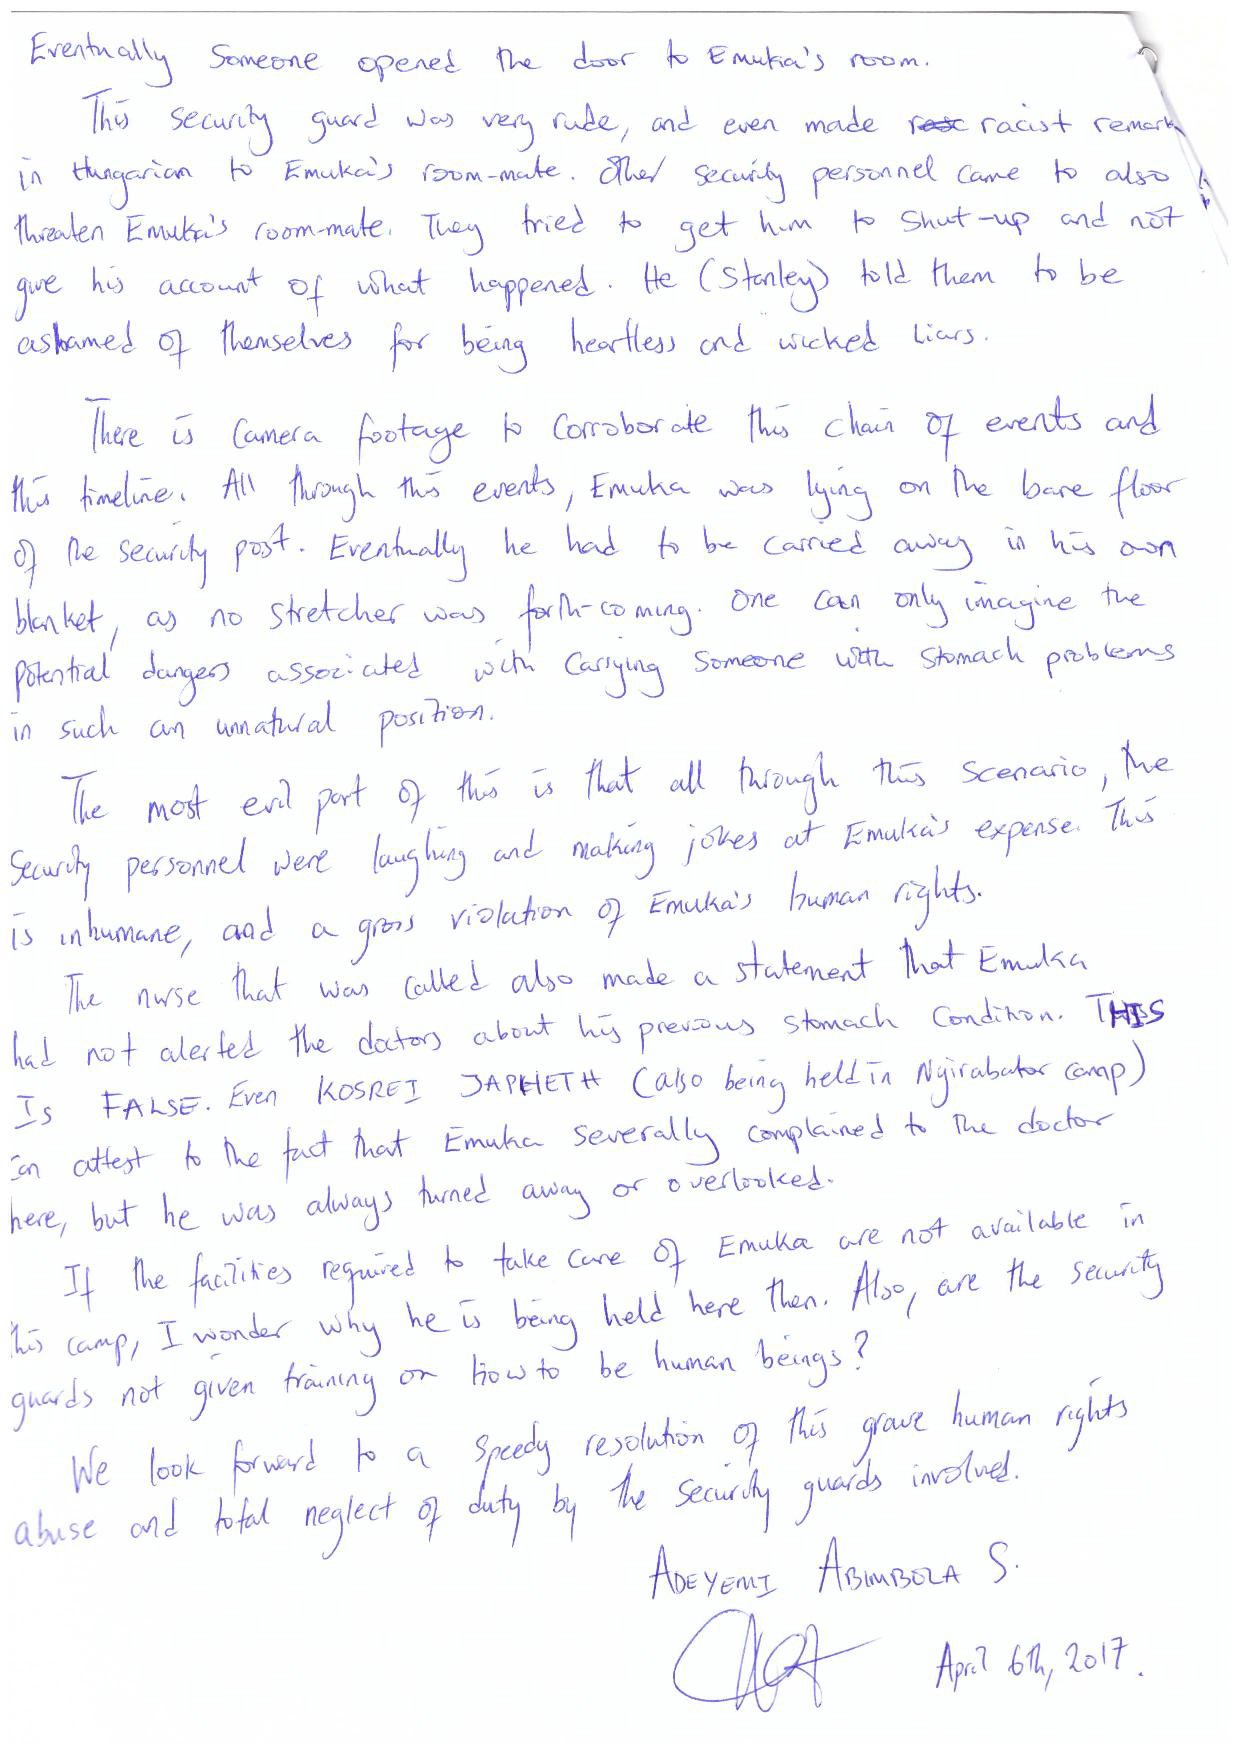 Eventually Someone opened the door to Emuka's room.
This security guard was very rude, and even made racist remark
in Hungarian to Emuka's room-mate. Other security personnel came to also
threaten Emuka's room-mate. They tried to get him to shut-up and not
give his account of what happened. He (Stanley) told them to be
ashamed of themselves for being heartless and wicked liars.
There is Camera footage to corroborate this chain of events and
this timeline. All through this events, Emuka was lying on the bare floor
of the security post. Eventually he had to be carried away in his own
blanket, as no stretcher was forth-coming. One can only imagine the
potential dangers associated with carrying someone with stomach problems
in such an unnatural position.
The most evil part of this is that all through this scenario, the
Security personnel were laughing and making jokes at Emuka's expense. This
is inhumane, and a gross violation of Emuka's human rights.
The nurse that was called also made a statement that Emuka
had not alerted the doctors about his previous stomach condition. THIS
Is FALSE. Even KOSREI JAPHETH (also being held in Nyirabator camp)
can attest to the fact that Emuka severally complained to the doctor
here, but he was always turned away or overlooked.
If the facilities required to take care of Emuka are not available in
this camp, I wonder why he is being held here then. Also, are the security
guards not given training on how to be human beings?
We look forward to a speedy resolution of this grave human rights
abuse and total neglect of duty by the security guards involved.
ADEYEMI ABIMBOLA S.
April 6th, 2017.